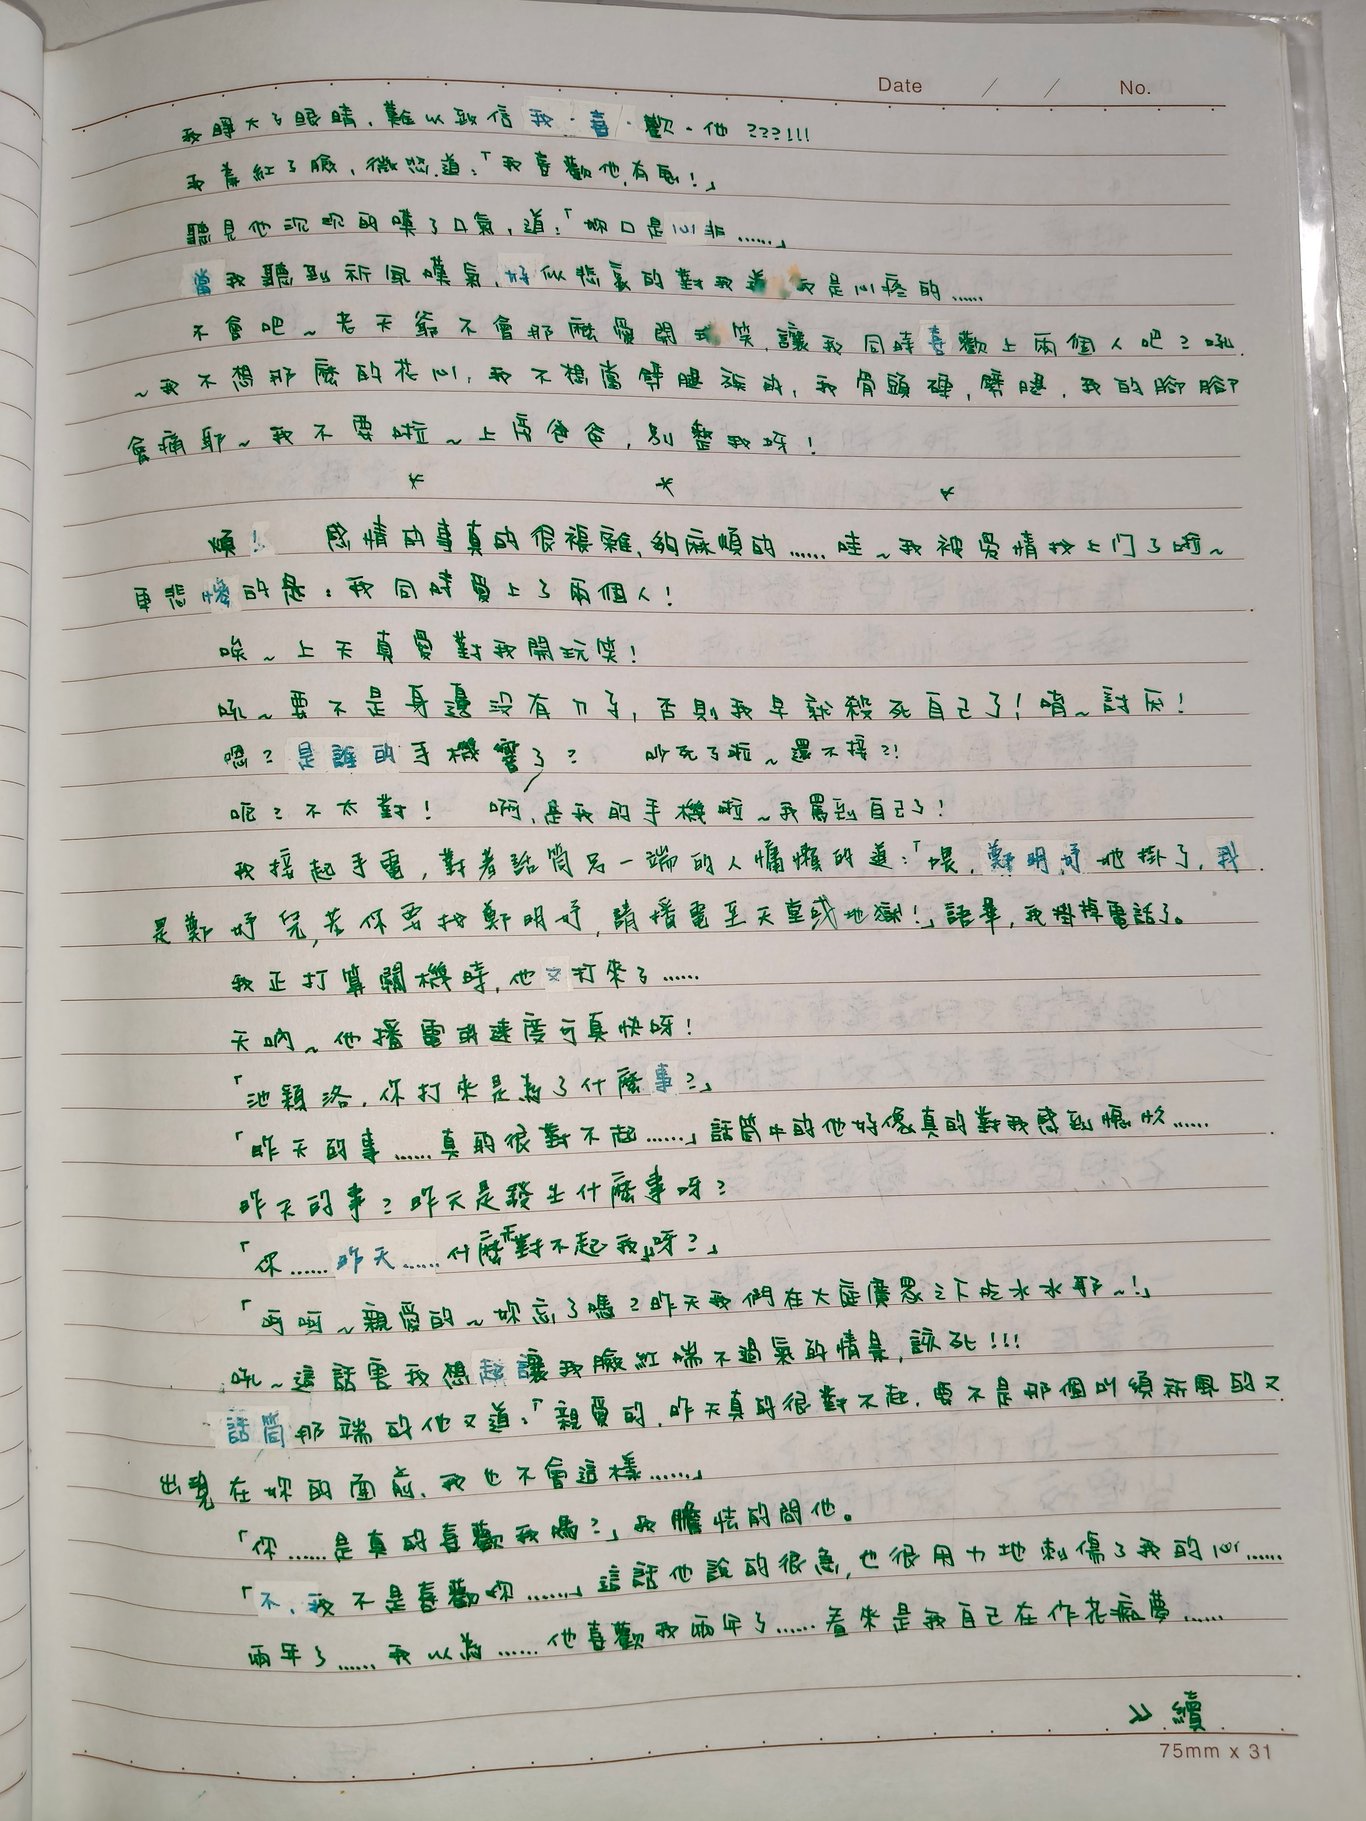 Date / / No.
我睜大了眼睛，難以致信 我·喜·歡·他???!!!
我羞紅了臉，微怒道：「我喜歡他，有屁！」
聽見他沉沉的嘆了口氣，道：「妳口是心非……」
當我聽到祈風嘆氣，好似悲哀的對我道 我是心疼的……
不會吧~老天爺不會那麼愛開我笑，讓我同時喜歡上兩個人吧？吼
~我不想那麼的花心，我不想當劈腿族的，我骨頭硬，劈腿，我的腳腳
會痛耶~我不要啦~上帝爸爸，別整我呀！
* * *
煩！ 感情的事真的很複雜，夠麻煩的……哇~我被愛情找上门了啦~
更悲慘的是：我同時愛上了兩個人！
唉~上天真愛對我開玩笑！
吼~要不是身邊沒有刀子，否則我早就殺死自己了！唷~討厭！
嗯？是誰的手機響了？ 吵死了啦~還不接?!
呃？不太對！ 啊，是我的手機啦~我罵到自己了！
我接起手電，對著話筒另一端的人慵懶的道：「喂，鄭明妤她掛了，我
是鄭妤兒，若你要找鄭明妤，請播電至天堂或地獄！」語畢，我掛掉電話了。
我正打算關機時，他又打來了……
天吶~他播電的速度可真快呀！
「池穎洛，你打來是為了什麼事？」
「昨天的事……真的很對不起……」話筒中的他好像真的對我感到慚愧……
昨天的事？昨天是發生什麼事呀？
「你……昨天……什麼『對不起我』呀？」
「呵呵~親愛的~妳忘了嗎？昨天我們在大庭廣眾之下吃水水耶~！」
吼~這話害我想起讓我臉紅喘不過氣的情景，該死!!!
話筒那端的他又道：「親愛的，昨天真的很對不起，要不是那個叫須祈風的又
出現在妳的面前，我也不會這樣……」
「你……是真的喜歡我嗎？」我膽怯的問他。
「不，我不是喜歡妳……」這話他說的很急，也很用力地刺傷了我的心……
兩年了……我以為……他喜歡我兩年了……看來是我自己在作花痴夢……
>> 續
75mm x 31